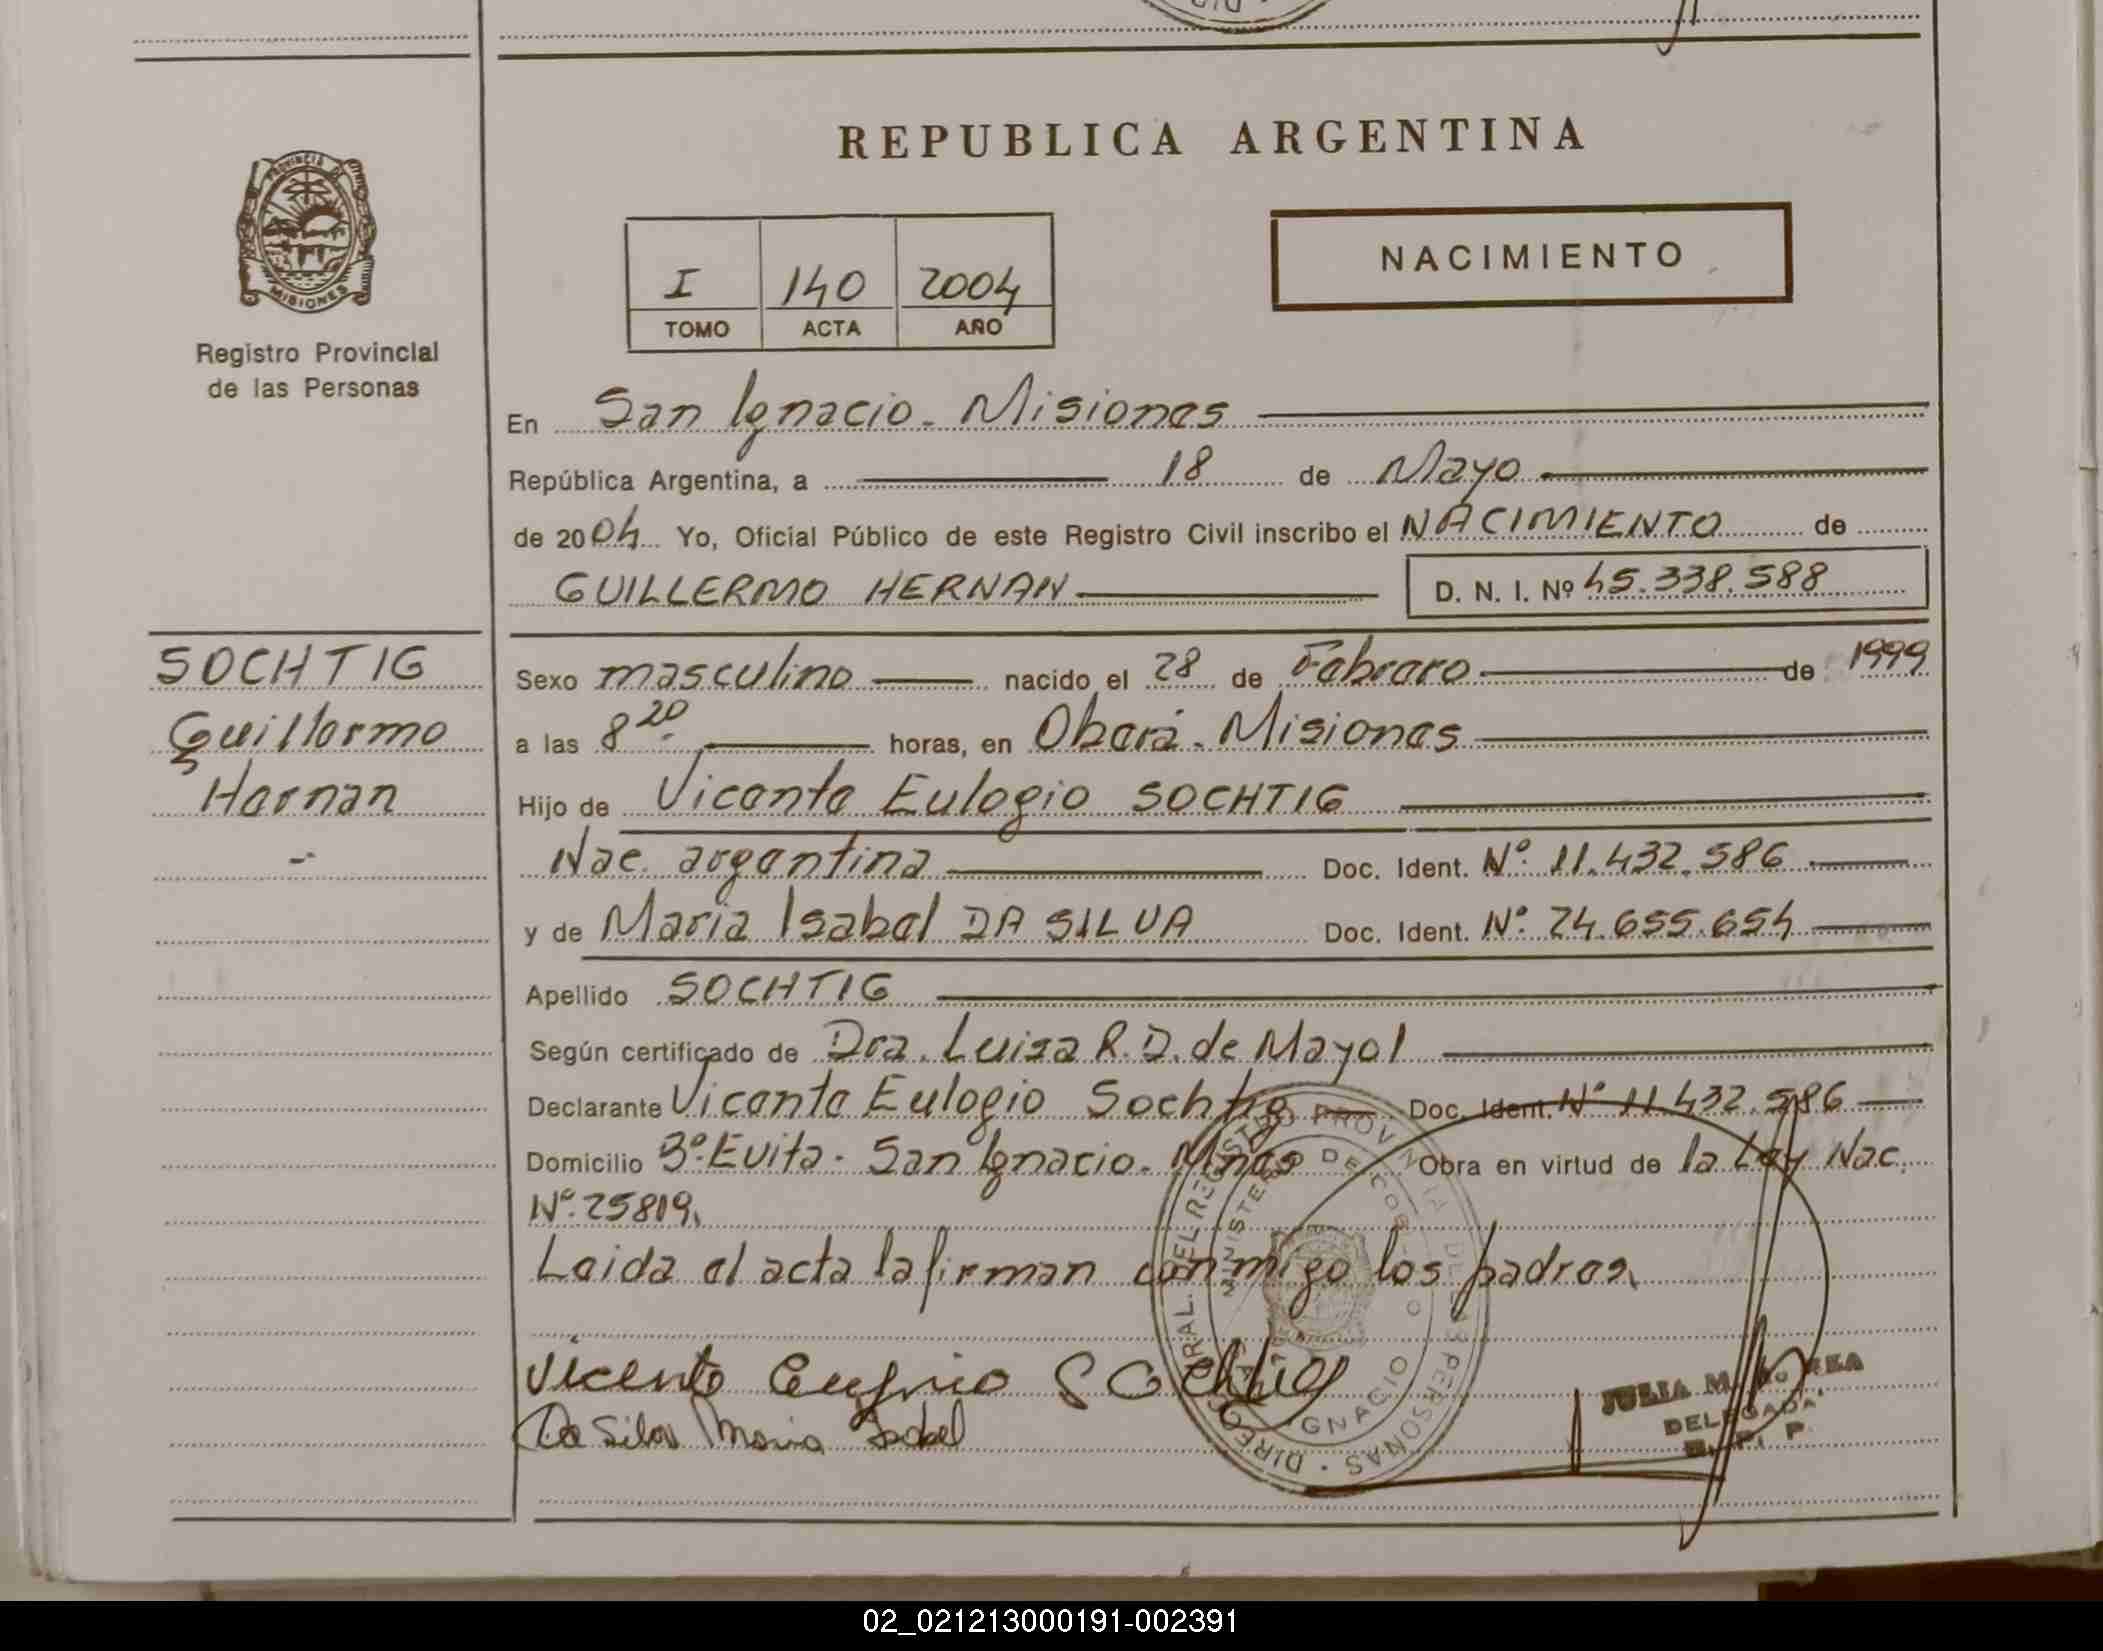 REPUBLICA ARGENTINA
PROVINCIA DE MISIONES
Registro Provincial
de las Personas
I 140 2004
TOMO ACTA AÑO
NACIMIENTO
En San Ignacio - Misiones
República Argentina, a 18 de Mayo
de 2004 Yo, Oficial Público de este Registro Civil inscribo el NACIMIENTO de
GUILLERMO HERNAN D. N. I. Nº 45.338.588
SOCHTIG
Guillermo
Hernan
Sexo masculino nacido el 28 de Febrero de 1999
a las 8 20 horas, en Oberá - Misiones
Hijo de Vicente Eulogio SOCHTIG
Nac. argentina Doc. Ident. Nº 11.432.586
y de Maria Isabel DA SILVA Doc. Ident. Nº 24.655.654
Apellido SOCHTIG
Según certificado de Dra. Luisa R. D. de Mayol
Declarante Vicente Eulogio Sochtig Doc. Ident. Nº 11.432.586
Domicilio Bº Evita - San Ignacio - Mnes Obra en virtud de la Ley Nac.
Nº 25819.
Leida el acta la firman conmigo los padres.
Vicente Eugnio SOchtig
Da Silva Maria Isabel
JULIA M.
DELEGADA
R. P. P.
02_021213000191-002391